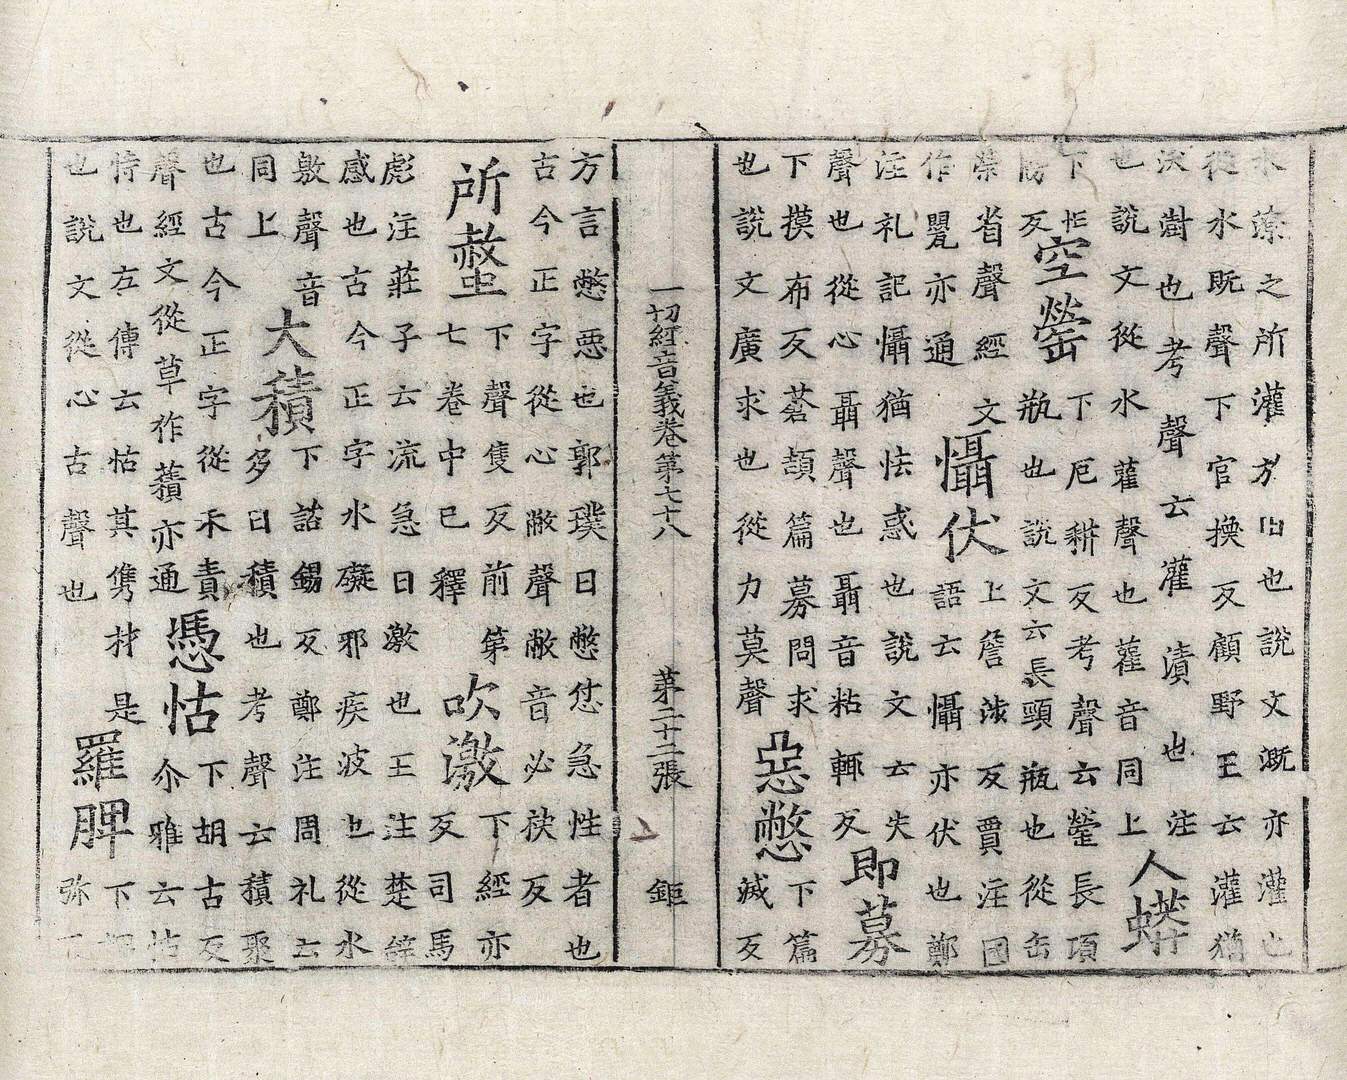 水潦之所灌方旧也說文溉亦灌也
從水既聲下官換反顧野王云灌猶
沃澍也考聲云灌漬也注
也說文從水雚聲也雚音同上
人蟒
下忙
牓反
空罃
下厄耕反考聲云罃長項
瓶也說文云長頸瓶也從缶
榮省聲經文
作甖亦通
懾伏
上詹涉反賈注國
語云懾亦伏也鄭
注礼記懾猶怯惑也說文云失
聲也從心聶聲也聶音粘輒反
即募
下摸布反蒼頡篇募問求
也說文廣求也從力莫聲
惡憋
下篇
滅反
一切經音義卷第七十八 第二十二張 鉅
方言憋惡也郭璞曰憋怤急性者也
古今正字從心敝聲敝音必袂反
所螫
下聲隻反前第
七卷中已釋
吹激
下經亦
反司馬
彪注莊子云流急曰激也王注楚辝
感也古今正字水礙邪疾波也從水
敫聲音
同上
大積
下諮錫反鄭注周礼云
多曰積也考聲云積聚
也古今正字從禾責
聲經文從草作蕷亦通
憑怙
下胡古反
尒雅云怙
恃也左傳云怙其儁材是
也說文從心古聲也
羅脾
下
弥